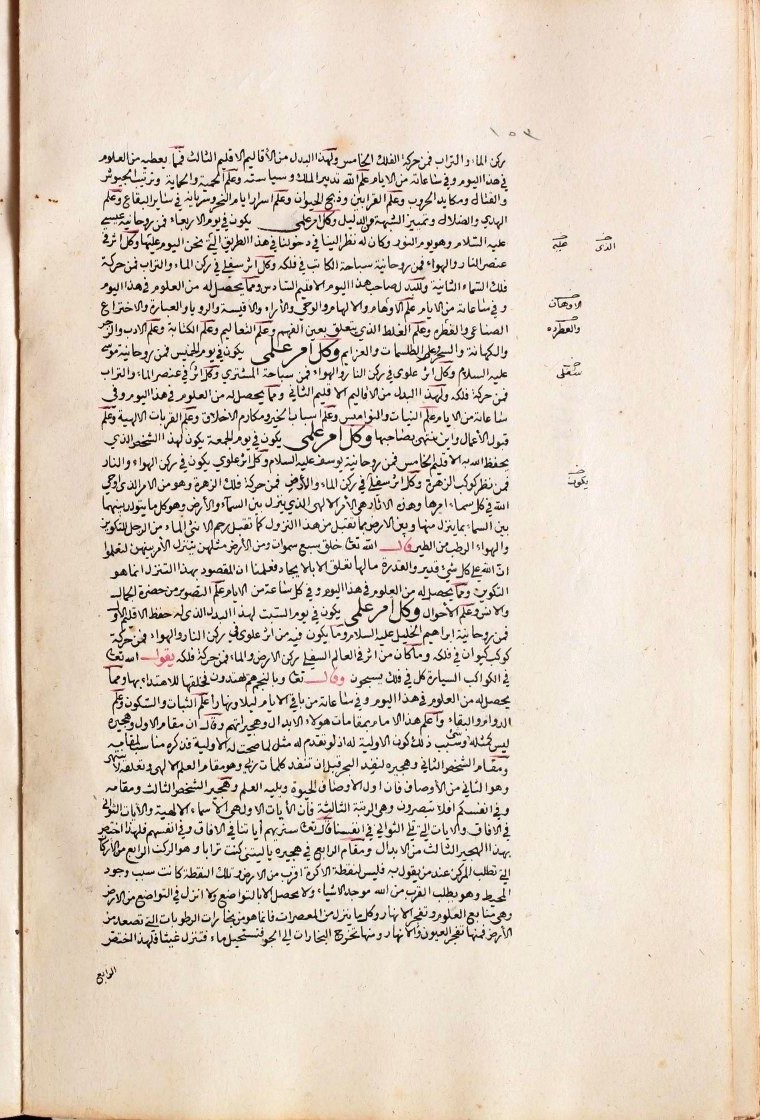 ١٥٣
بركن الماء والتراب فمن حركة الفلك الخامس ولهذا البدل من الأقاليم الاقليم الثالث فما يعطيه من العلوم
في هذا اليوم وفي ساعاته من الايام علم الله تدبير الملك وسياسته وعلم الحمية والحماية وترتيب الجيوش
والقتال ومكايد الحروب وعلم القرابين وذبح الحيوان وعلم اسرار ايام النحر وسريانه في ساير البقاع وعلم
الهدي والضلال وتمييز الشبهة من الدليل وكل امر علمي يكون في يوم الاربعاء فمن روحانية عيسى
عليه السلام وهو يوم النور وكان له نظر الينا في دخولنا في هذا الطريق التي نحن اليوم عليها وكل اثر في
عنصر النار والهواء فمن روحانية سباحة الكاتب في فلكه وكل اثر سفلي في ركن الماء والتراب فمن حركة
فلك السماء الثانية وللبدل صاحب هذا اليوم الاقليم السادس ومما يحصل له من العلوم في هذا اليوم
وفي ساعاته من الايام علم الاوهام والالهام والوحي والأراء والاقيسة والرويا والعبارة والاختراع
الصناعي والفطره وعلم الغلط الذي يتعلق بعين الفهم وعلم التعاليم وعلم الكتابة وعلم الادب والزجر
والكهانة والسحر وعلم الطلسمات والعزايم وكل امر علمي يكون في يوم الخميس فمن روحانية موسى
عليه السلام وكل اثر علوي في ركن النار والهواء فمن سباحة المشتري وكل اثر في عنصر الماء والتراب
فمن حركة فلكه ولهذا البدل من الأقاليم الاقليم الثاني ومما يحصل له من العلوم في هذا اليوم وفي
ساعاته من الايام علم النبات والنواميس وعلم اسباب الخير ومكارم الاخلاق وعلم القربات الالهية وعلم
قبول الأعمال واين ينتهي بصاحبها وكل امر علمي يكون في يوم الجمعة يكون لهذا الشخص الذي
يحفظ الله به الاقليم الخامس فمن روحانية يوسف عليه السلام وكل اثر علوي يكون في ركن الهواء والنار
فمن نظر كوكب الزهرة وكل اثر سفلي في ركن الماء والأرض فمن حركة فلك الزهرة وهو من الامر الذي اوحى
الله في كل سماء امرها وهذه الاثار هي الأمر الالهي الذي يتنزل بين السماء والأرض وهو كل ما يتولد بينهما
بين السماء بما ينزل منها وبين الارض بما تقبل من هذا النزول كما تقبل رحم الانثى الماء من الرجل للتكوين
والهواء الرطب من الطير قال الله تعالى خلق سبع سموات ومن الأرض مثلهن يتنزل الأمر بينهن لتعلموا
ان الله على كل شئ قدير والقدرة مالها تعلق الا بالايجاد فعلمنا ان المقصود بهذا التنزل انما هو
التكوين ومما يحصل له من العلوم في هذا اليوم وفي كل ساعة من الايام علم التصوير من حضرة الجمال
والانس وعلم الأحوال وكل امر علمي يكون في يوم السبت لهذا البدل الذي له حفظ الاقليم الأو
فمن روحانية ابراهيم الخليل عليه السلام وما يكون فيه من اثر علوي في ركن النار والهواء فمن حركة
كوكب كيوان في فلكه وما كان من اثر في العالم السفلي ركن الارض والماء فمن حركة فلكه يقول الله تعا
في الكواكب السيارة كل في فلك يسبحون وقال تعا وبالنجم هم يهتدون فخلقها للاهتداء بها ومما
يحصل له من العلوم في هذا اليوم وفي ساعاته من باقي الايام ليلا ونهارا علم الثبات والسكون وعلم
الدوام والبقاء وعلم هذا الامام بمقامات هولاء الابدال وهجيراتهم وقال ان مقام الاول وهجيره
ليس كمثله شئ وسبب ذلك كون الاولية له اذ لو تقدم له مثل لما صحت له الاولية فذكره مناسب لمقامه
ومقام الشخص الثاني وهجيره لنفد البحر قبل ان تنفد كلمات ربي وهو مقام العلم الالهي وتعلقه لا ينتهي
وهو الثاني من الأوصاف فان اول الاوصاف الحيوة ويليه العلم وهجير الشخص الثالث ومقامه
وفي انفسكم افلا تبصرون وهي الرتبة الثالثة فان الأيات الاول هي الأسماء الالهية والأيات الثواني
في الآفاق والايات التي تلي الثواني في انفسنا قال تعا سنريهم أياتنا في الافاق وفي انفسهم فلهذا اختص
بهذا الهجير الثالث من الابدال ومقام الرابع في هجيره ياليتني كنت ترابا وهو الركن الرابع من الاركان
الذي تطلب المركز عند من يقول به فليس لنقطة الاكرة اقرب من الارض وتلك النقطة كانت سبب وجود
المحيط وهو يطلب القرب من الله موجد الاشياء ولا يحصل الا بالتواضع ولا انزل في التواضع من الارض
وهي منابع العلوم وتفجر الانهار وكل ما ينزل من المعصرات فانما هو من بخارات الرطوبات التي تصعد من
الأرض فمنها تتفجر العيون والأنهار ومنها تخرج البخارات الى الجو فتستحيل ماء فتنزل غيثا فلهذا اختص
الرابع
الذى
عليه
الاوهان
والعطرده
سفلى
يكون